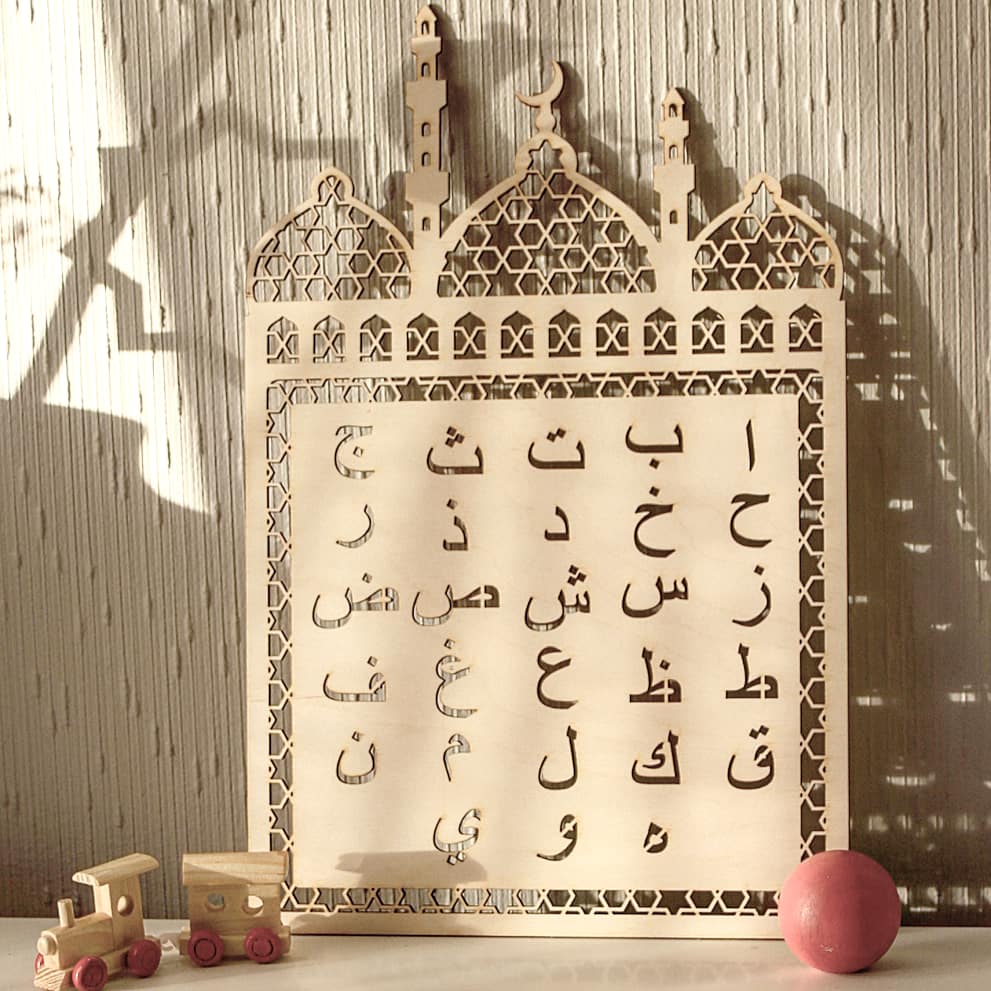 ا ب ت ث ج
ح خ د ذ ر
ز س ش ص ض
ط ظ ع غ ف
ق ك ل م ن
ه و ي